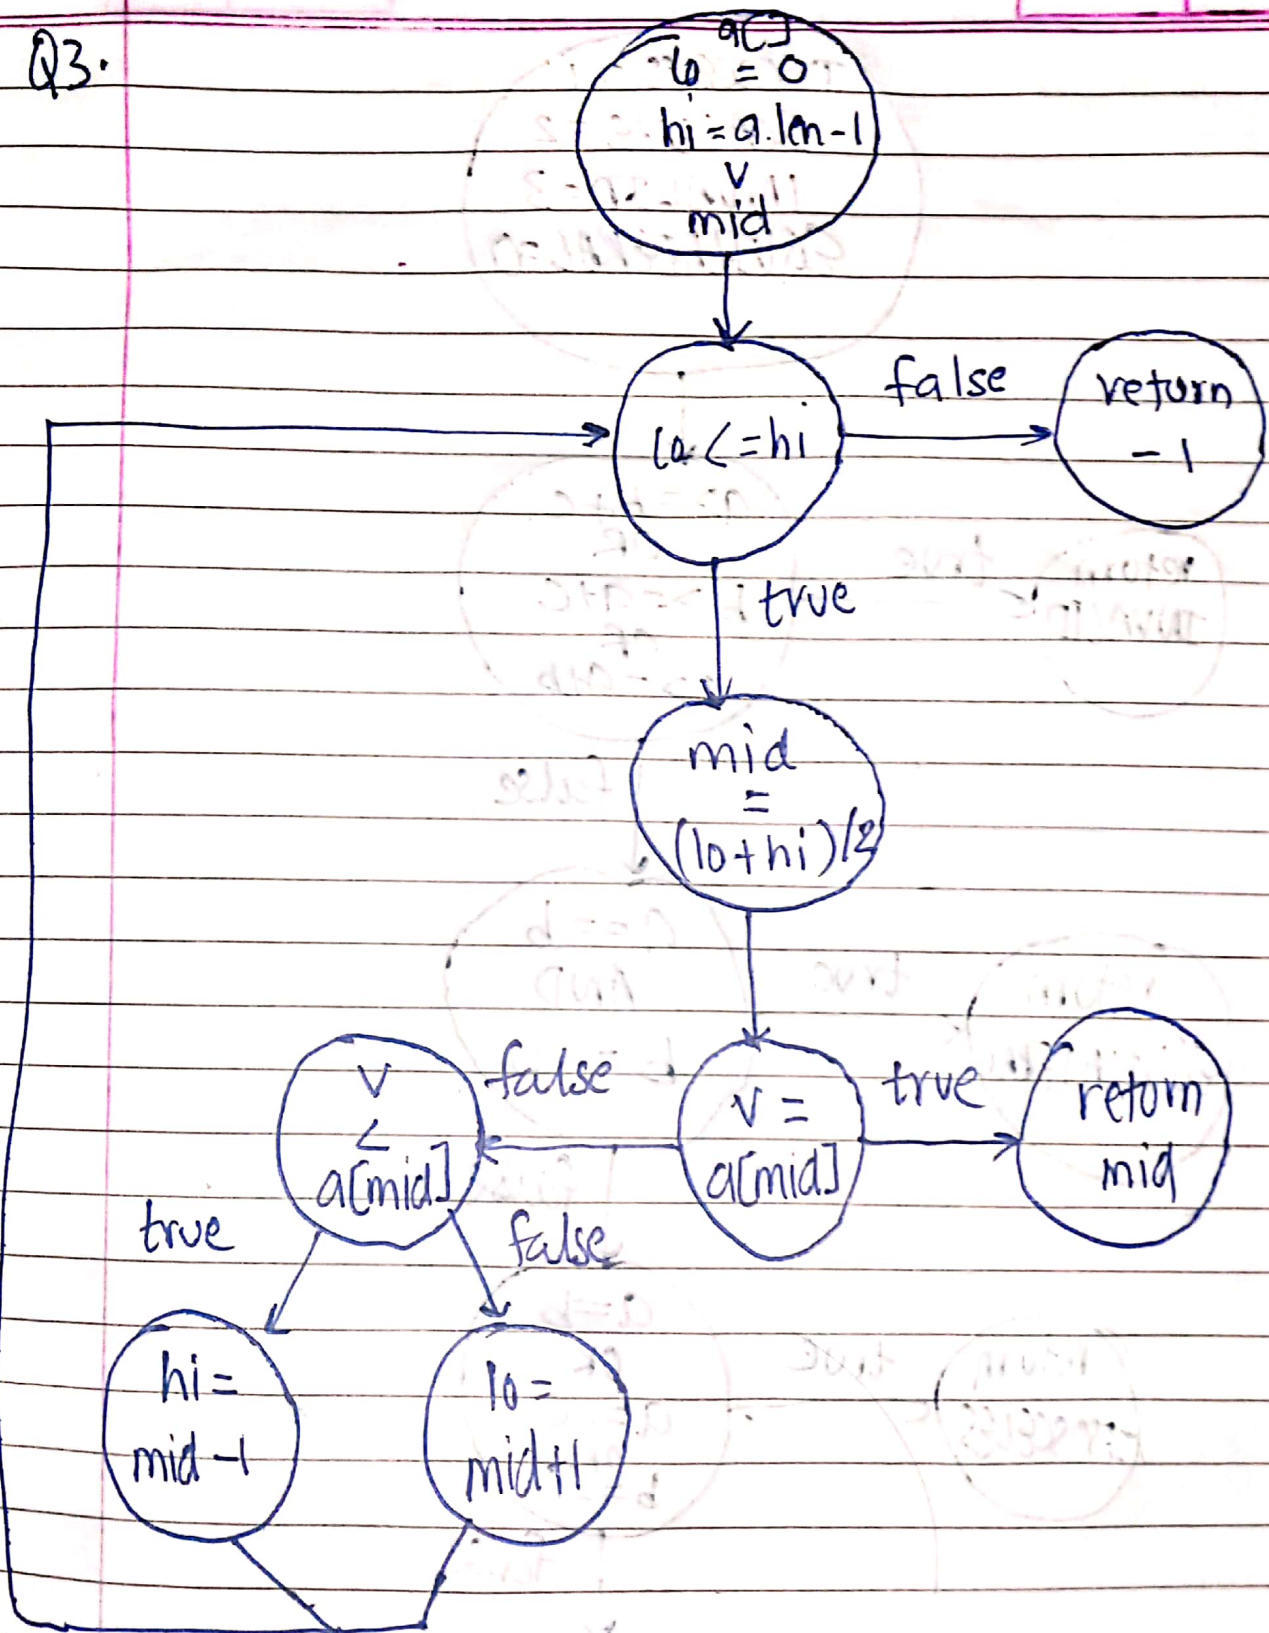 Q3.
a[]
lo = 0
hi = a.len-1
v
mid
lo <= hi
false
return
-1
true
mid
=
(lo+hi)/2
v
<
a[mid]
false
v =
a[mid]
true
return
mid
true
false
hi =
mid-1
lo =
mid+1